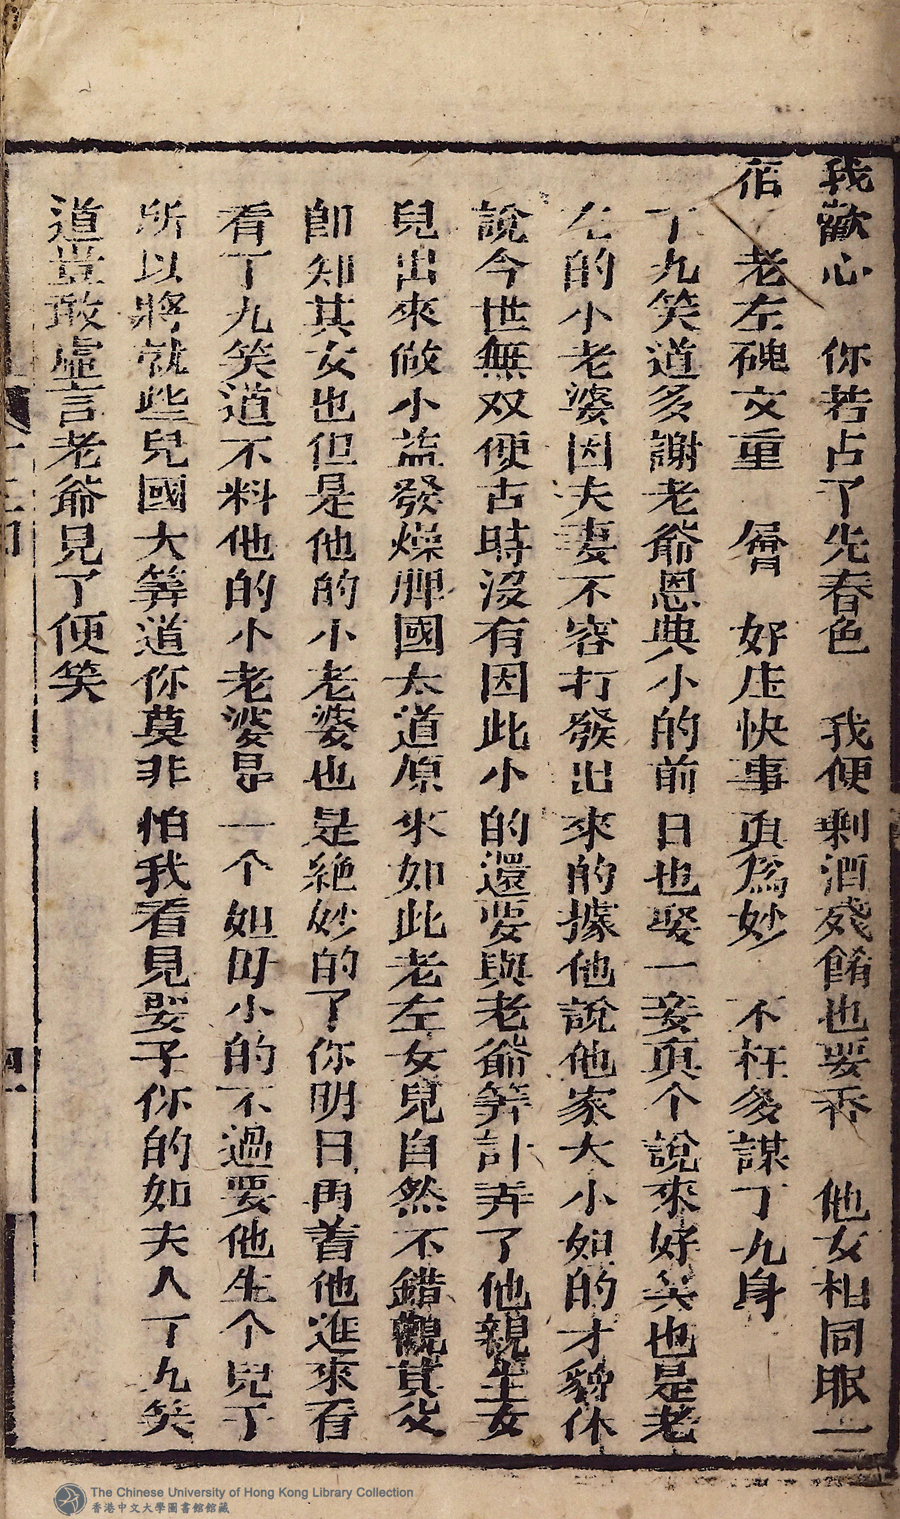 我歡心　你若占了先春色　我便剩酒殘餚也要香　他女相同眠一
宿　老左磈文重　層　好庄快事真爲妙　不枉多謀丁九身
丁九笑道多謝老爺恩典小的前日也娶一妾真个說來好笑也是老
左的小老婆因夫妻不容打發出來的據他說他家大小姐的才貌休
說今世無双便古時没有因此小的還要與老爺筭計弄了他親生女
兒出來做小盖發燥脾國太道原來如此老左女兒自然不錯觀其父
卽知其女也但是他的小老婆也是絶妙的了你明日再着他進來看
看丁九笑道不料他的小老婆是一个姐母小的不過要他生个兒子
所以將就些兒國大筭道你莫非怕我看見娶子你的如夫人丁九笑
道豈敢虛言老爺見了便笑
The Chinese University of Hong Kong Library Collection
香港中文大學圖書館館藏